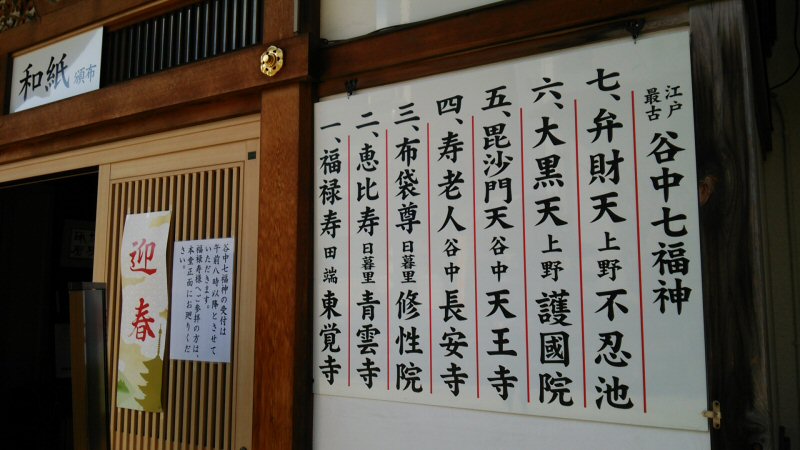 和紙 頒布
江戸最古 谷中七福神
七、弁財天 上野 不忍池
六、大黒天 上野 護國院
五、毘沙門天 谷中 天王寺
四、寿老人 谷中 長安寺
三、布袋尊 日暮里 修性院
二、恵比寿 日暮里 青雲寺
一、福禄寿 田端 東覚寺
谷中七福神の受付は
午前八時以降とさせて
いただきます。
福禄寿様へご参拝の方は、
本堂正面にお廻りくだ
さい。
迎春